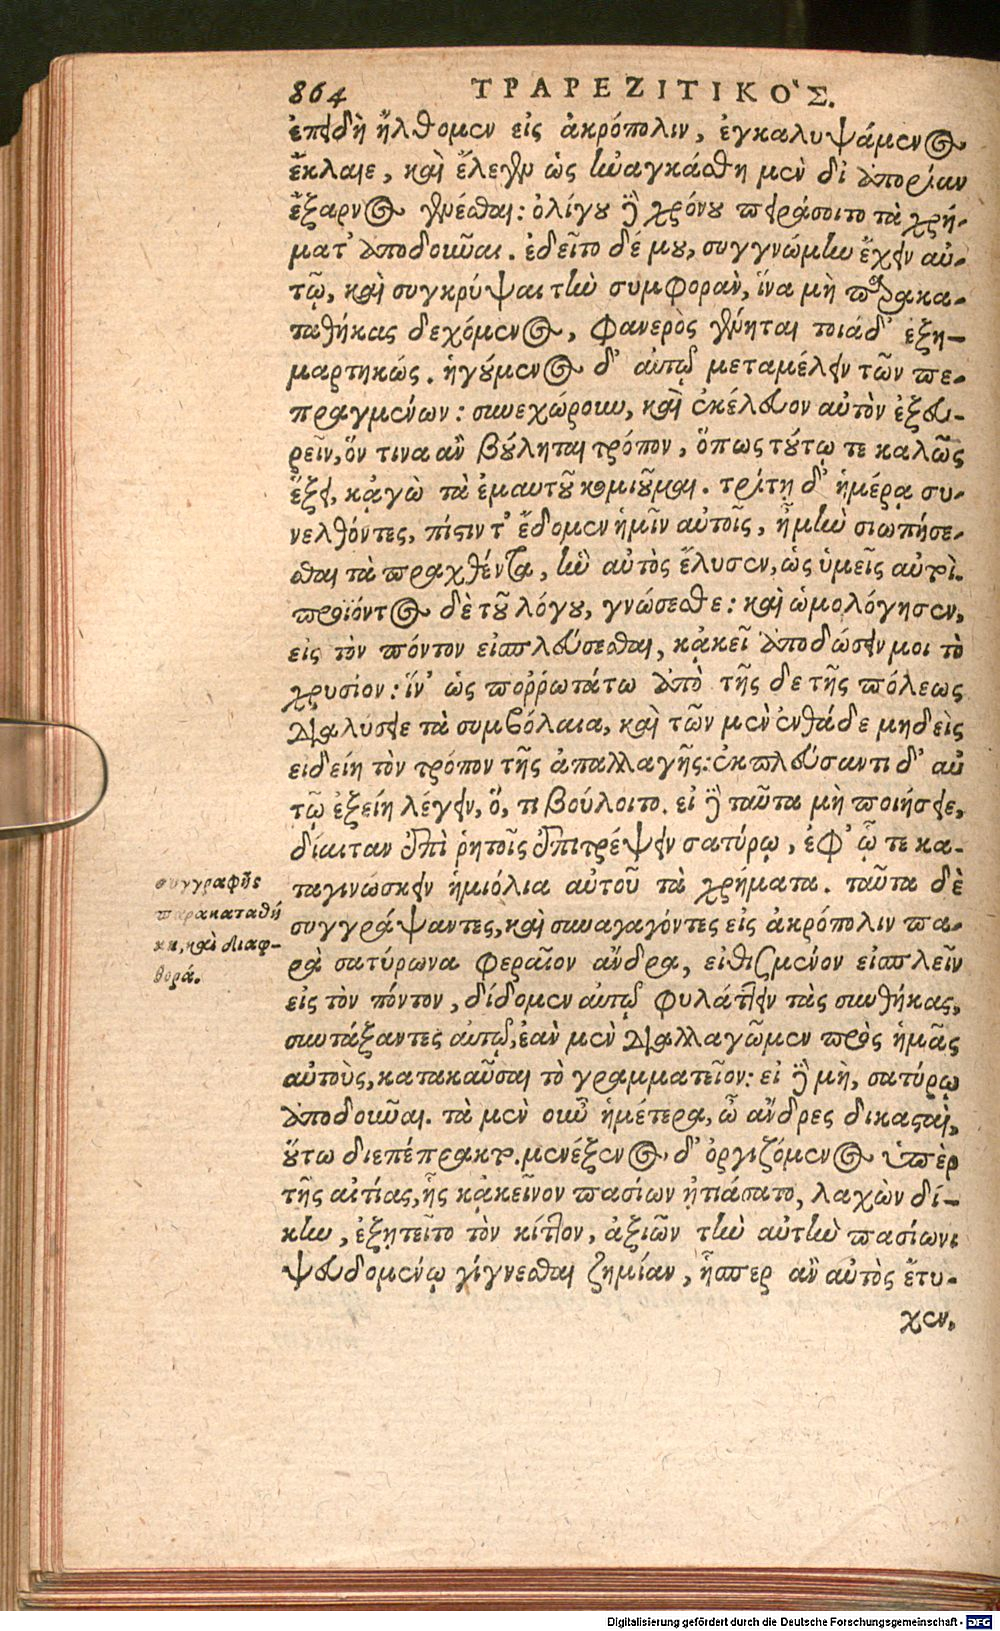 864 ΤΡΑΡΕΖΙΤΙΚΟ῾Σ.
ἐπειδὴ ἤλθομεν εἰς ἀκρόπολιν, ἐγκαλυψάμενος
ἔκλαιε, καὶ ἔλεγεν ὡς ἠναγκάσθη μὲν δι' ἀπορίαν
ἔξαρνος γενέσθαι: ὀλίγου δὲ χρόνου πειράσοιτο τὰ χρή-
ματ' ἀποδοῦναι. ἐδεῖτο δέ μου, συγγνώμην ἔχειν αὐ-
τῷ, καὶ συγκρύψαι τὴν συμφορὰν, ἵνα μὴ παρακα-
ταθήκας δεχόμενος, φανερὸς γένηται τοιάδ' ἐξη-
μαρτηκώς. ἡγούμενος δ' αὐτῷ μεταμέλειν τῶν πε-
πραγμένων: συνεχώρουν, καὶ ἐκέλευον αὐτὸν ἐξευ-
ρεῖν, ὅν τινα ἂν βούληται τρόπον, ὅπως τούτῳ τε καλῶς
ἕξει, κᾀγὼ τὰ ἐμαυτοῦ κομιοῦμαι. τρίτῃ δ' ἡμέρᾳ συ-
νελθόντες, πίστιν τ' ἔδομεν ἡμῖν αὐτοῖς, ἦ μὴν σιωπήσε-
σθαι τὰ πραχθέντα, ἣν αὐτὸς ἔλυσεν, ὡς ὑμεῖς αὐτὶ.
προϊόντος δὲ τοῦ λόγου, γνώσεσθε: καὶ ὡμολόγησεν,
εἰς τὸν πόντον εἰσπλεύσεσθαι, κᾀκεῖ ἀποδώσειν μοι τὸ
χρυσίον: ἵν' ὡς ποῤῥωτάτω ἀπὸ τῆς δε τῆς πόλεως
διαλύσειε τὰ συμβόλαια, καὶ τῶν μὲν ἐνθάδε μηδεὶς
εἰδείη τὸν τρόπον τῆς ἀπαλλαγῆς: ἐκπλεύσαντι δ' αὐ
τῷ ἐξείη λέγειν, ὅ, τι βούλοιτο. εἰ δὲ ταῦτα μὴ ποιήσειε,
δίαιταν ἐπὶ ῥητοῖς ἐπιτρέψειν σατύρῳ, ἐφ' ᾧ τε κα-
ταγινώσκειν ἡμιόλια αὐτοῦ τὰ χρήματα. ταῦτα δὲ
συγγράψαντες, καὶ συναγαγόντες εἰς ἀκρόπολιν πα-
ρὰ σατύρωνα Φεραῖον ἄνδρα, εἰθισμένον εἰσπλεῖν
εἰς τὸν πόντον, δίδομεν αὐτῷ φυλάττειν τὰς συνθήκας,
συντάξαντες αὐτῷ, ἐὰν μὲν διαλλαγῶμεν πρὸς ἡμᾶς
αὐτοὺς, κατακαῦσαι τὸ γραμματεῖον: εἰ δὲ μὴ, σατύρῳ
ἀποδοῦναι. τὰ μὲν οὖν ἡμέτερα, ὦ ἄνδρες δικασταὶ,
οὕτω διεπέπρακτο. μενέξενος δ' ὀργιζόμενος ὑπὲρ
τῆς αἰτίας, ἧς κᾀκεῖνον πασίων ᾐτιάσατο, λαχὼν δί-
κην, ἐξῃτεῖτο τὸν κίττον, ἀξιῶν τὴν αὐτὴν πασίωνι
ψευδομένῳ γίγνεσθαι ζημίαν, ἧσπερ ἂν αὐτὸς ἔτυ-
χεν.
συγγραφῆς
παρακαταθή
κη, καὶ διαφ-
θορά.
Digitalisierung gefördert durch die Deutsche Forschungsgemeinschaft - DFG